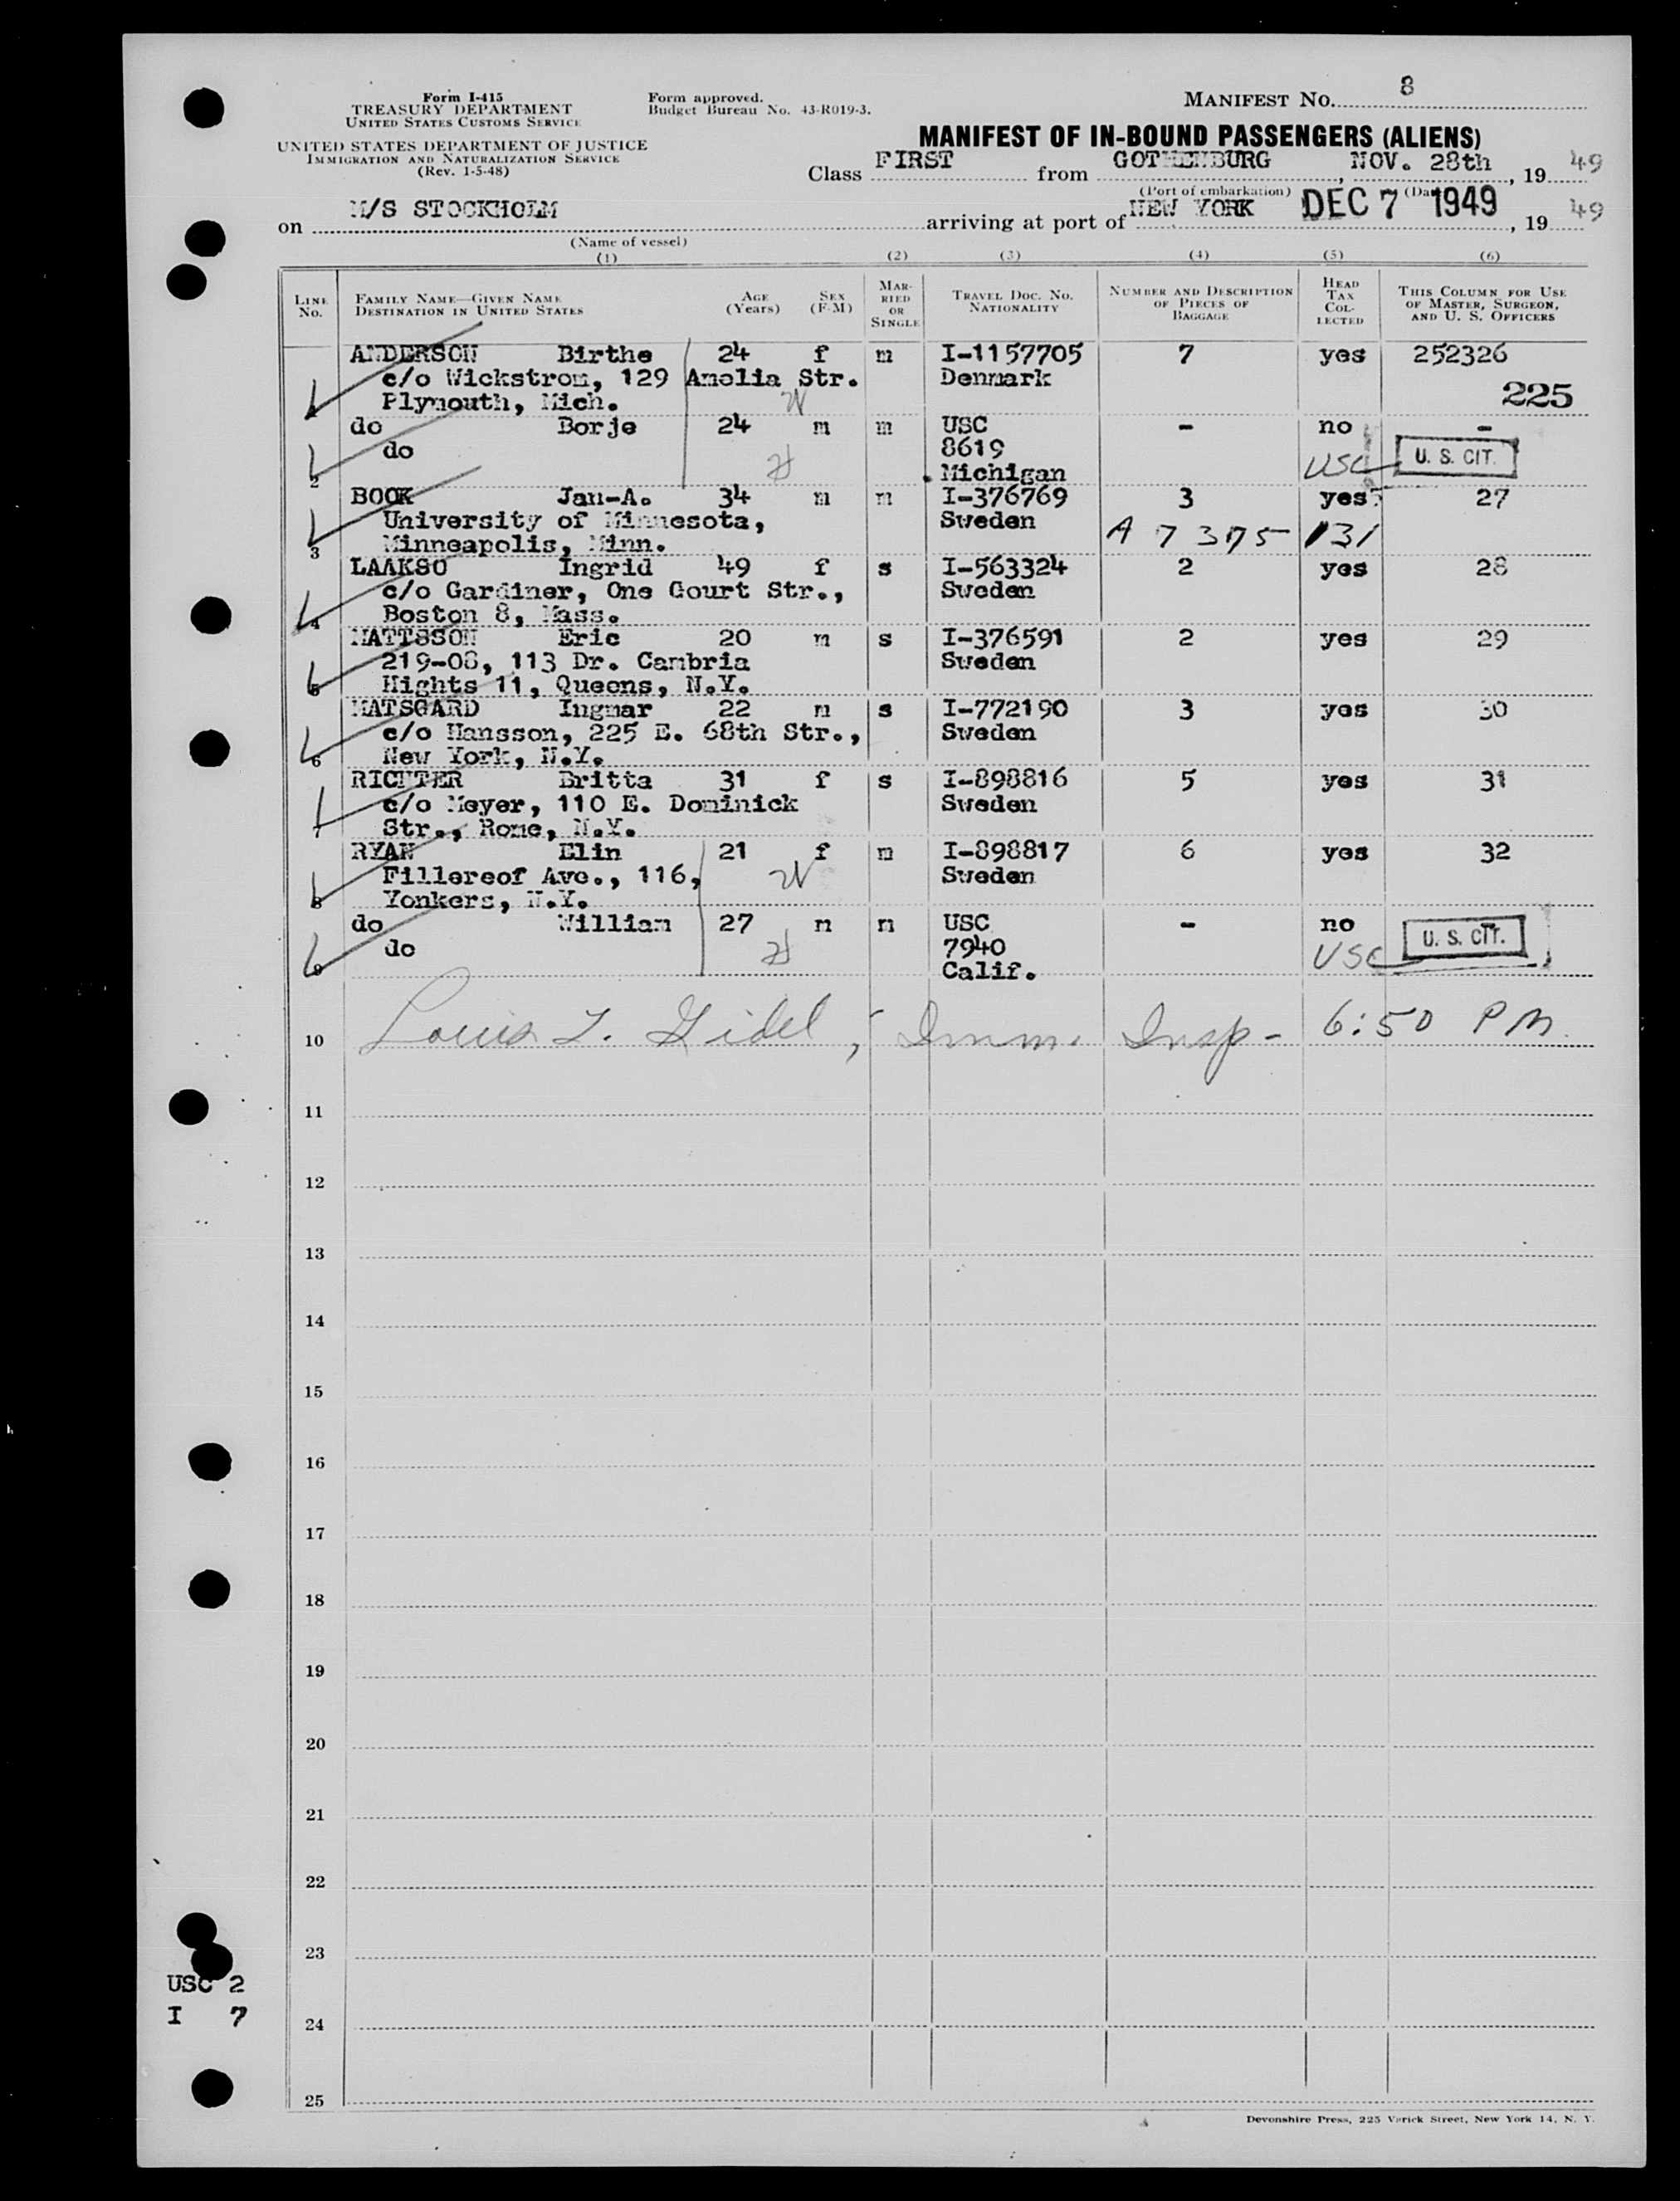 Form I-415
TREASURY DEPARTMENT
UNITED STATES CUSTOMS SERVICE
UNITED STATES DEPARTMENT OF JUSTICE
IMMIGRATION AND NATURALIZATION SERVICE
(Rev. 1-5-48)
Form approved.
Budget Bureau No. 43-R019-3.
MANIFEST NO. 8
MANIFEST OF IN-BOUND PASSENGERS (ALIENS)
Class FIRST from GOTHENBURG, NOV. 28th, 19 49
(Port of embarkation) (Date)
on M/S STOCKHOLM arriving at port of NEW YORK DEC 7 1949, 19 49
(Name of vessel)
(1) (2) (3) (4) (5) (6)
LINE NO. FAMILY NAME—GIVEN NAME DESTINATION IN UNITED STATES AGE (Years) SEX (F-M) MARRIED OR SINGLE TRAVEL DOC. NO. NATIONALITY NUMBER AND DESCRIPTION OF PIECES OF BAGGAGE HEAD TAX COLLECTED THIS COLUMN FOR USE OF MASTER, SURGEON, AND U. S. OFFICERS
ANDERSON Birthe 24 f m I-1157705 7 yes 252326
c/o Wickstrom, 129 Amelia Str. Denmark
Plymouth, Mich. W 225
do Borje 24 m m USC - no -
do 8619 USC U. S. CIT.
2 Michigan
BOOK Jan-A. 34 m m I-376769 3 yes 27
University of Minnesota, Sweden A 7 375 131
3 Minneapolis, Minn.
LAAKSO Ingrid 49 f s I-563324 2 yes 28
c/o Gardiner, One Court Str., Sweden
4 Boston 8, Mass.
MATTSSON Eric 20 m s I-376591 2 yes 29
219-08, 113 Dr. Cambria Sweden
5 Hights 11, Queens, N.Y.
MATSGARD Ingmar 22 m s I-772190 3 yes 30
c/o Hansson, 225 E. 68th Str., Sweden
6 New York, N.Y.
RICHTER Britta 31 f s I-898816 5 yes 31
c/o Meyer, 110 E. Dominick Sweden
Str., Rome, N.Y.
RYAN Elin 21 f m I-898817 6 yes 32
Fillereof Ave., 116, W Sweden
8 Yonkers, N.Y.
do William 27 m m USC - no -
do 7940 USC U. S. CIT.
9 Calif.
10 Louis T. Gidel, Imm. Insp- 6:50 PM
11
12
13
14
15
16
17
18
19
20
21
22
23
USC 2
I 7
24
25
Devonshire Press, 225 Varick Street, New York 14, N. Y.